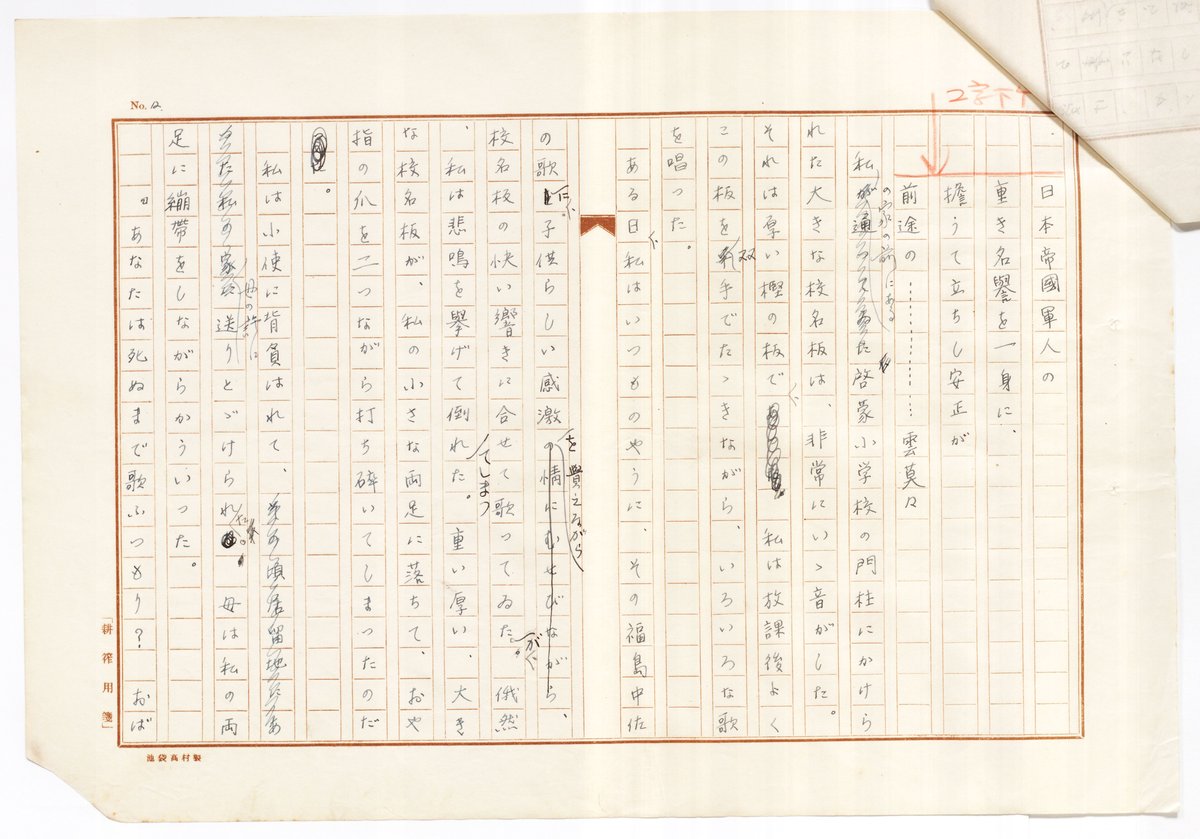 No. 12.
2字下ゲ
日本帝國軍人の
重き名譽を一身に、
擔うて立ちし安正が
前途の…………雲莫々
私の家の前にある啓蒙小学校の門柱にかけら
れた大きな校名板は、非常にいゝ音がした。
それは厚い樫の板で、私は放課後よく
この板を双手でたゝきながら、いろいろな歌
を唱った。
ある日、私はいつものやうに、その福島中佐
の歌に、子供らしい感激を覺えながら、
校名板の快い響きに合せて歌ってゐたが、俄然
、私は悲鳴を擧げて倒れてしまつた。重い厚い、大き
な校名板が、私の小さな両足に落ちて、おや
指の爪を二つながら打ち碎いてしまったのだ
。
私は小使に背負はれて、
母の許に送りとゞけられた。母は私の両
足に繃帯をしながらかういった。
『あなたは死ぬまで歌ふつもり？おば
「耕窄用箋」
池袋髙村製